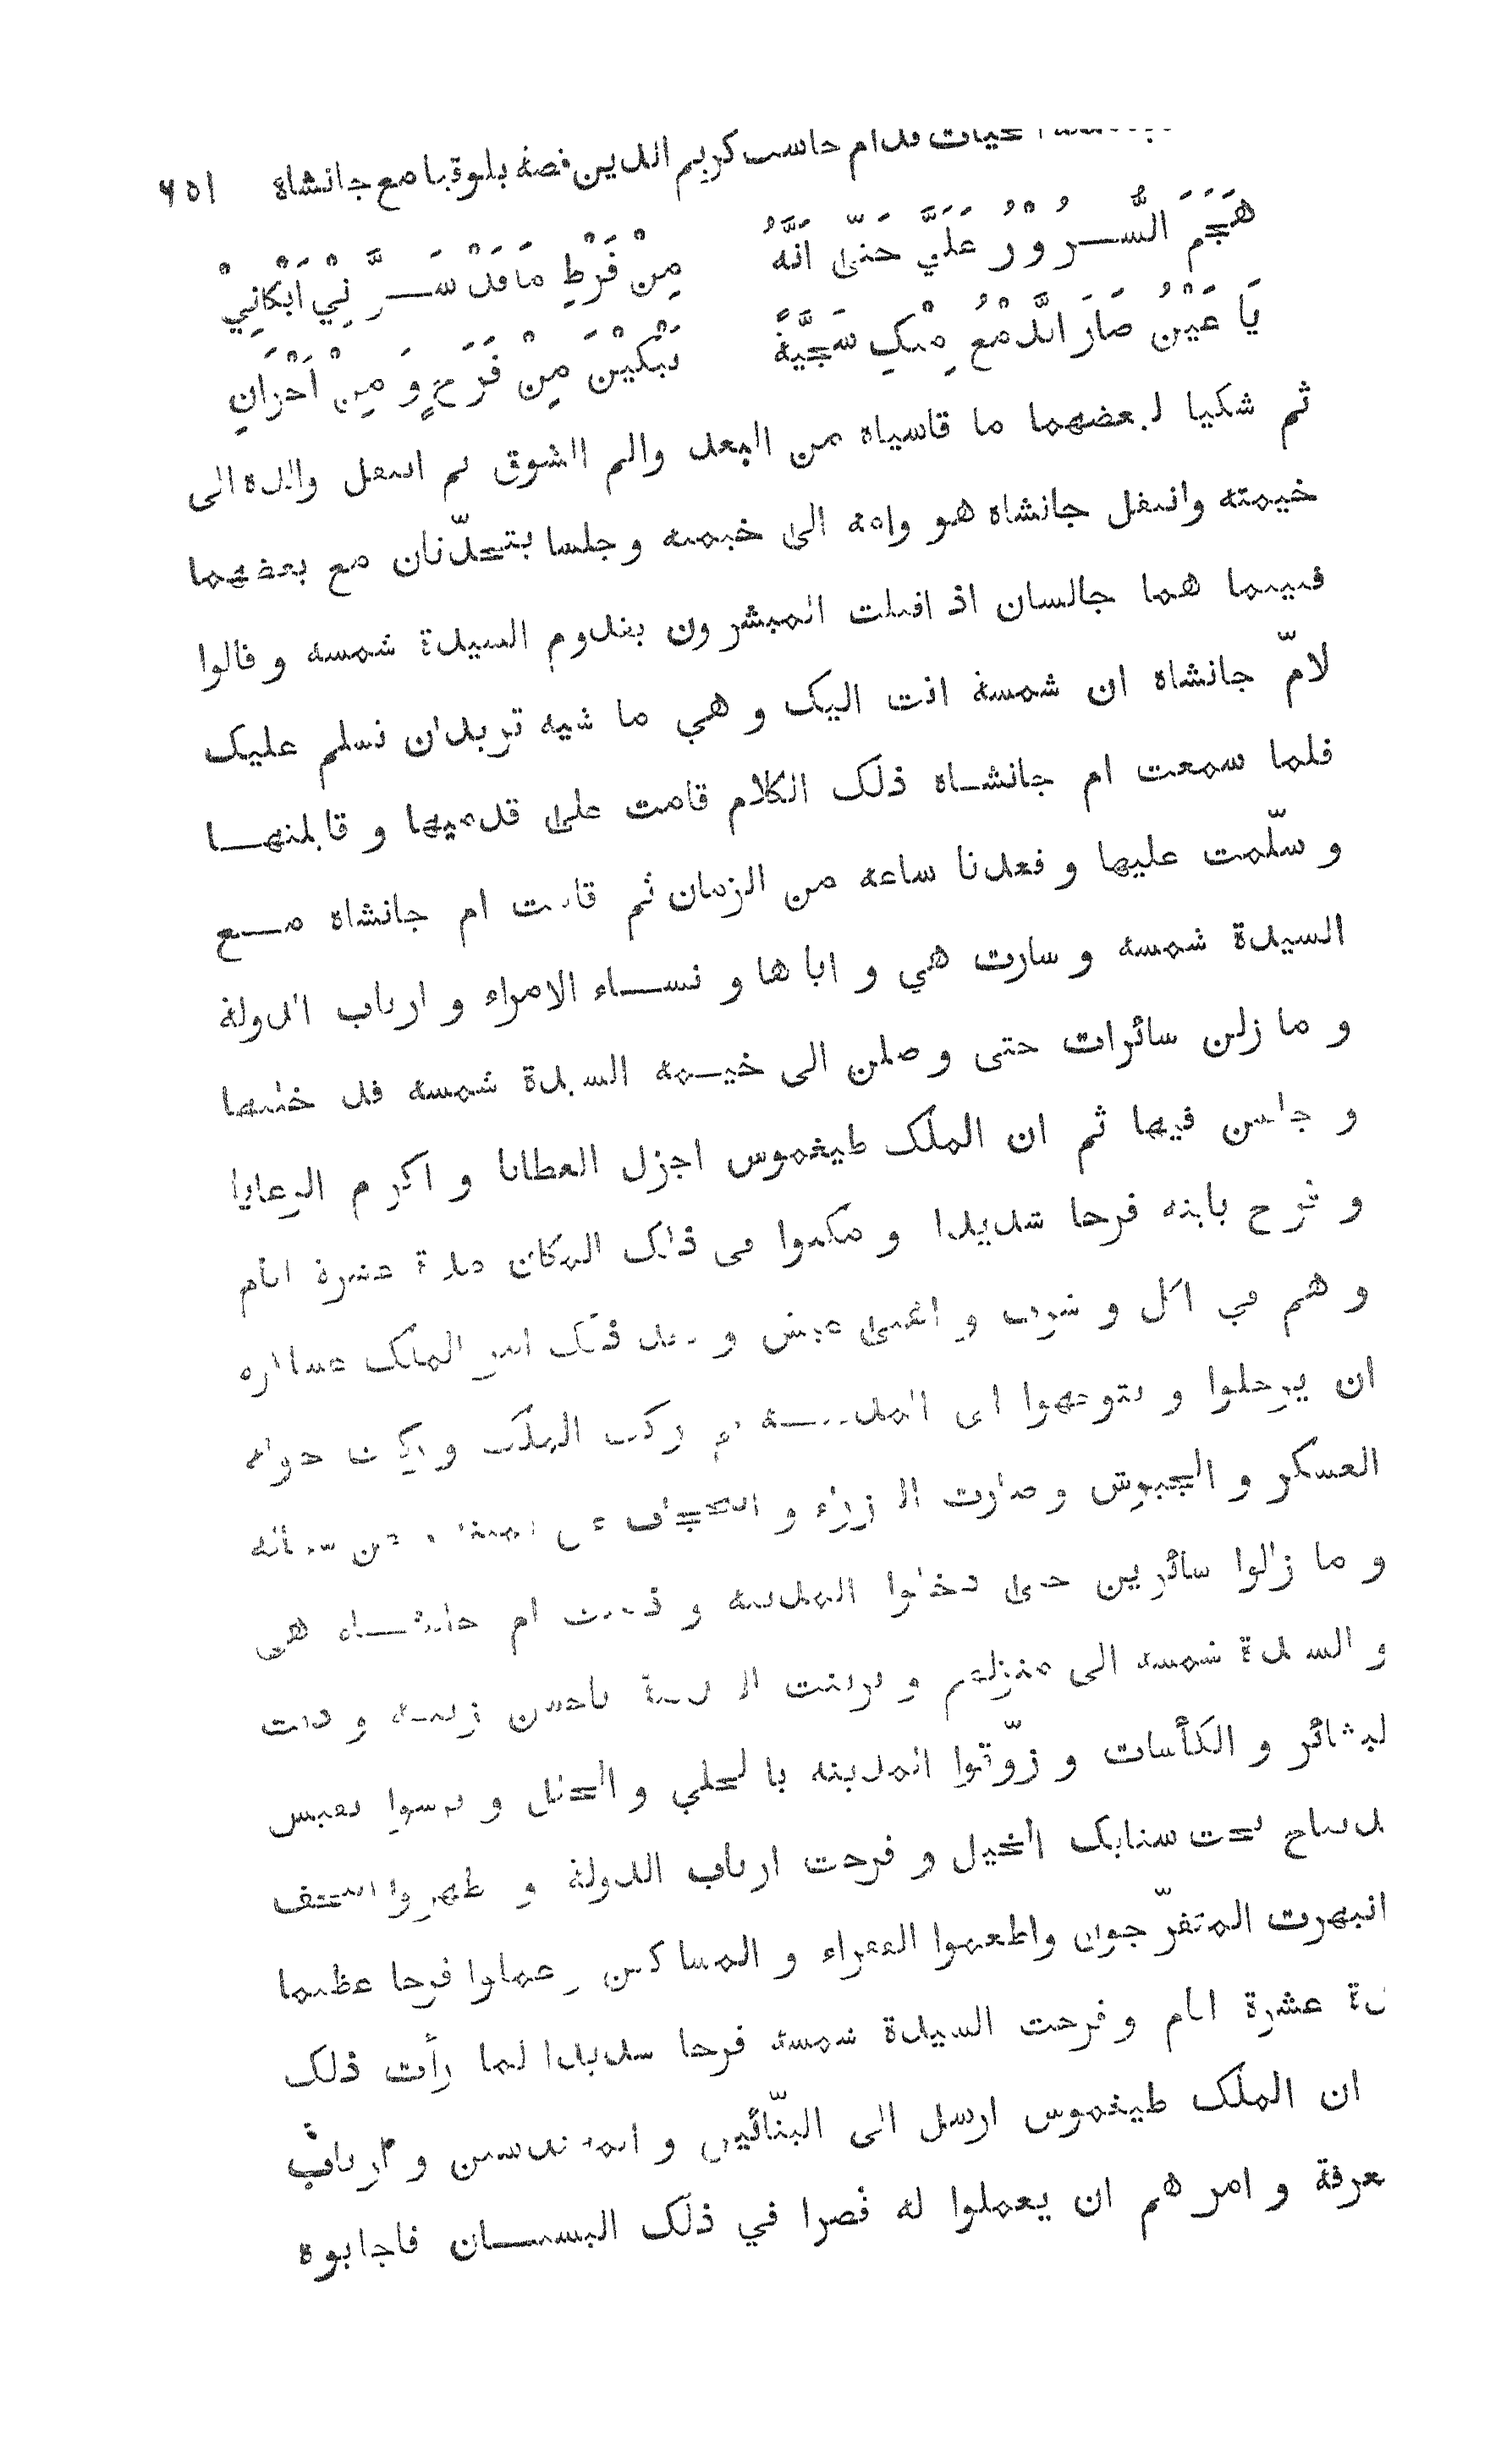 الحيات قدام حاسب كريم الدين قصة بلوقيا مع جانشاه ٦٥١
هَجَمَ السُّـرُوْرُ عَلَيَّ حَتّى اَنَّهُ مِنْ فَرْطِ مَا قَدْ سَـرَّ نِيْ اَبْكَانِيْ
يَا عَيْنُ صَارَ الدَّمْعُ مِنْكِ سَجِيَّةً تَبْكِيْنَ مِنْ فَرَحٍ وَ مِنْ اَحْزَانِ
ثم شكيا لبعضهما ما قاسياه من البعد والم الشوق ثم انتقل والده الى
خيمته وانتقل جانشاه هو وامه الى خيمته وجلسا يتحدّثان مع بعضهما
فبينما هما جالسان اذ اقبلت المبشرون بقدوم السيدة شمسه و قالوا
لامّ جانشاه ان شمسة اتت اليك و هي ما شيه تريدان تسلم عليك
فلما سمعت ام جانشـاه ذلك الكلام قامت على قدميها و قابلتهـا
و سلّمت عليها و قعدتا ساعة من الزمان ثم قامت ام جانشاه مـع
السيدة شمسه و سارت هي و اياها و نسـاء الامراء و ارباب الدولة
و ما زلن سائرات حتى وصلن الى خيـمة السيدة شمسه فدخلنها
و جلسن فيها ثم ان الملك طيغموس اجزل العطايا و اكرم الرعايا
و فرح بابنه فرحا شديدا و مكثوا في ذلك المكان مدة عشرة ايام
و هم في اكل و شرب و اهنى عيش و بعد ذلك امر الملك عساكره
ان يرحلوا و يتوجهوا الى المدينـة ثم ركب الملك وركبت حوله
العسكر و الجيوش و صارت الوزراء و الحجاب عن يمينه و عن شماله
و ما زالوا سائرين حتى دخلوا المدينة و ذهبت ام جانشـاه هي
و السيدة شمسه الى منزلهم و تزينت المدينة باحسن زينة و دقت
لبشائر و الكأسات و زوّقوا المدينه بالحلي و الحلل و فرشوا نفيس
لديباج تحت سنابك الخيل و فرحت ارباب الدولة و اظهروا التحف
انبهرت المتفرّجون واطعموا الفقراء و المساكين و عملوا فرحا عظيما
دة عشرة ايام و فرحت السيدة شمسة فرحا شديدا لما رأت ذلك
ان الملك طيغموس ارسل الى البنّائين و المهندسين و ارباب
عرفة و امر هم ان يعملوا له قصرا في ذلك البستـان فاجابوه